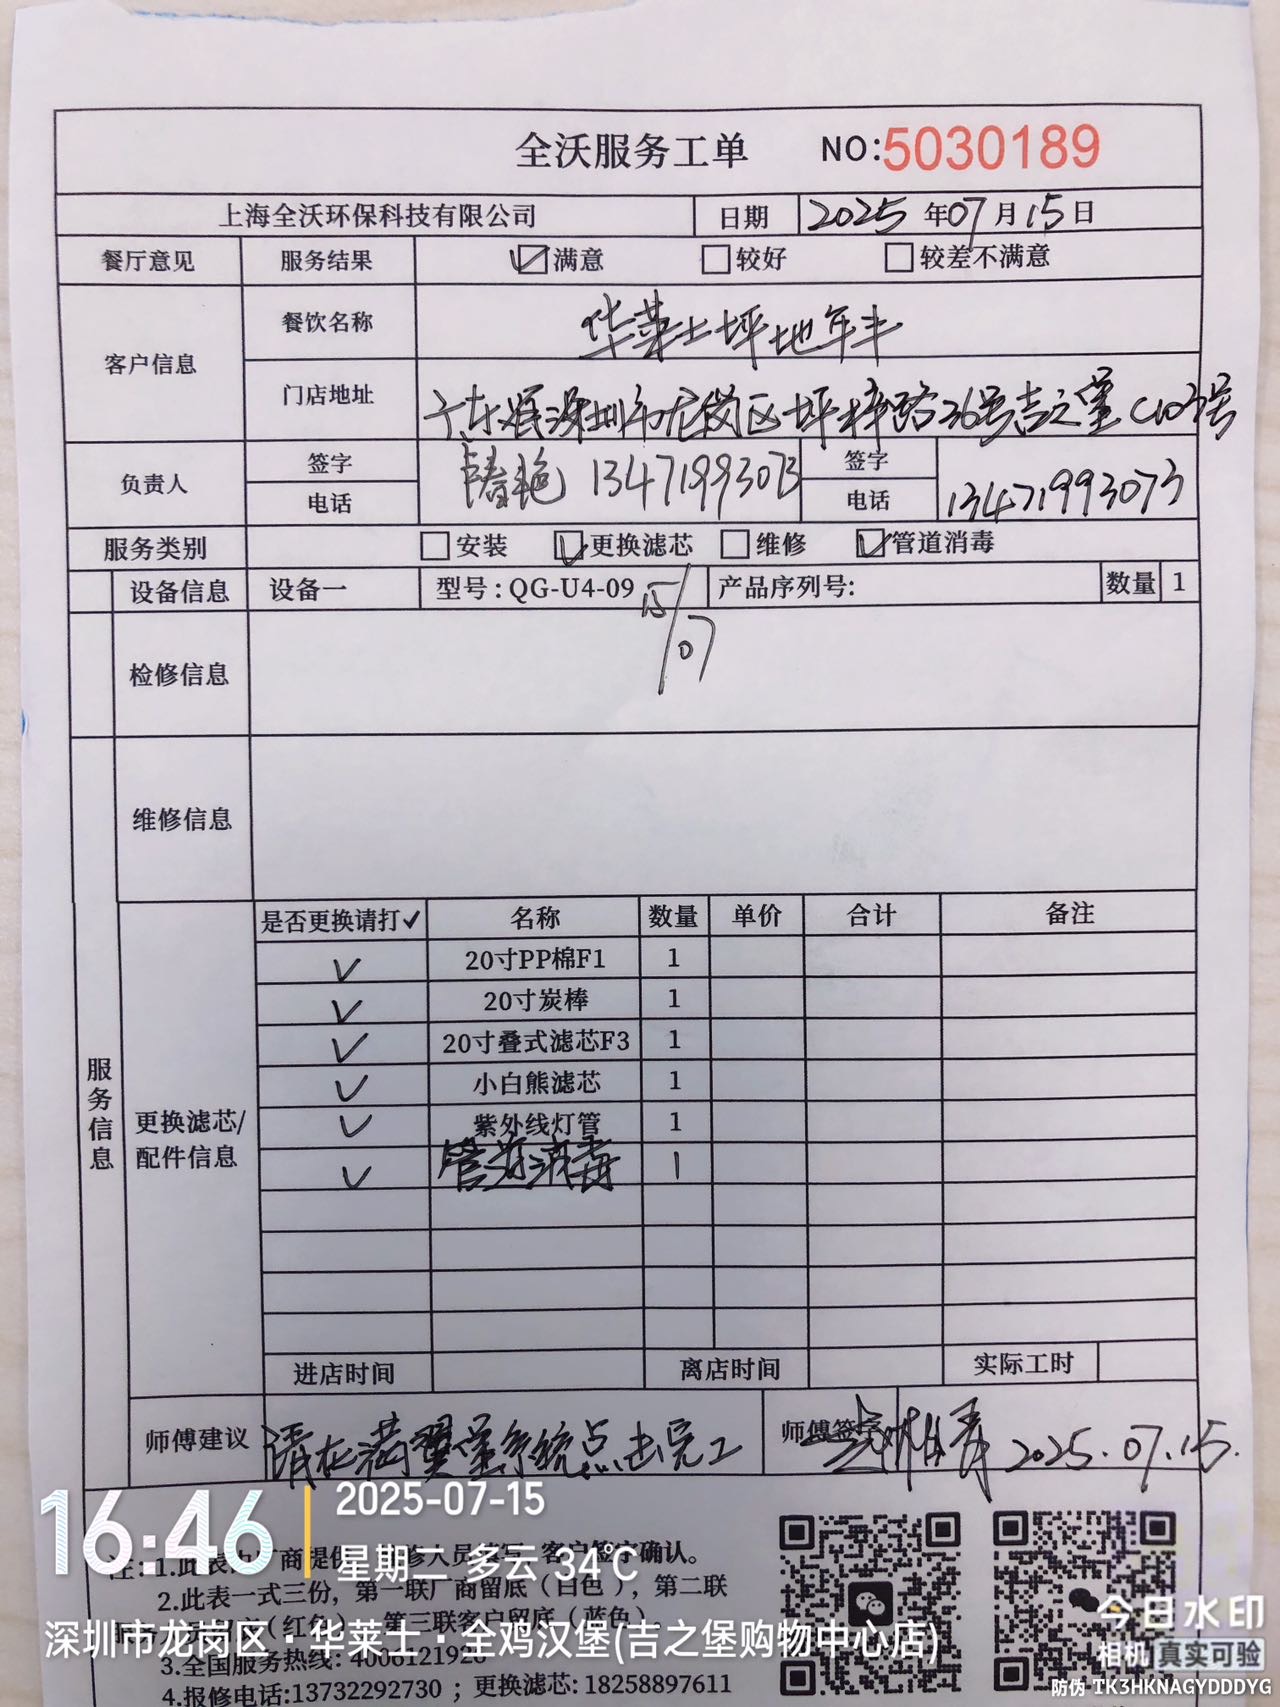 全沃服务工单 NO:5030189
上海全沃环保科技有限公司 日期 2025 年 07 月 15 日
餐厅意见 服务结果 满意 较好 较差不满意
客户信息 餐饮名称 华莱士坪地年丰
门店地址 广东省深圳市龙岗区坪梓路36号吉之堡C103号
负责人 签字 电话 13471993073 签字 电话 13471993073
服务类别 安装 更换滤芯 维修 管道消毒
设备信息 设备一 型号:QG-U4-09 产品序列号: 数量 1
15/07
检修信息
维修信息
服务信息
更换滤芯/
配件信息
是否更换请打✓ 名称 数量 单价 合计 备注
✓ 20寸PP棉F1 1
✓ 20寸炭棒 1
✓ 20寸叠式滤芯F3 1
✓ 小白熊滤芯 1
✓ 紫外线灯管 1
✓ 管道消毒 1
进店时间 离店时间 实际工时
师傅建议 请在满翼堡系统点击完工 师傅签 2025.07.15.
注:1.此表由厂商提供 修人员 客户签字确认。
2.此表一式三份,第一联厂商留底(白色),第二联
(红色) 第三联客户留底(蓝色)。
3.全国服务热线:400612192
4.报修电话:13732292730 ; 更换滤芯:18258897611
16:46
2025-07-15
星期二 多云 34℃
深圳市龙岗区·华莱士·全鸡汉堡(吉之堡购物中心店)
今日水印
相机 真实可验
防伪 TK3HKNAGYDDDYG